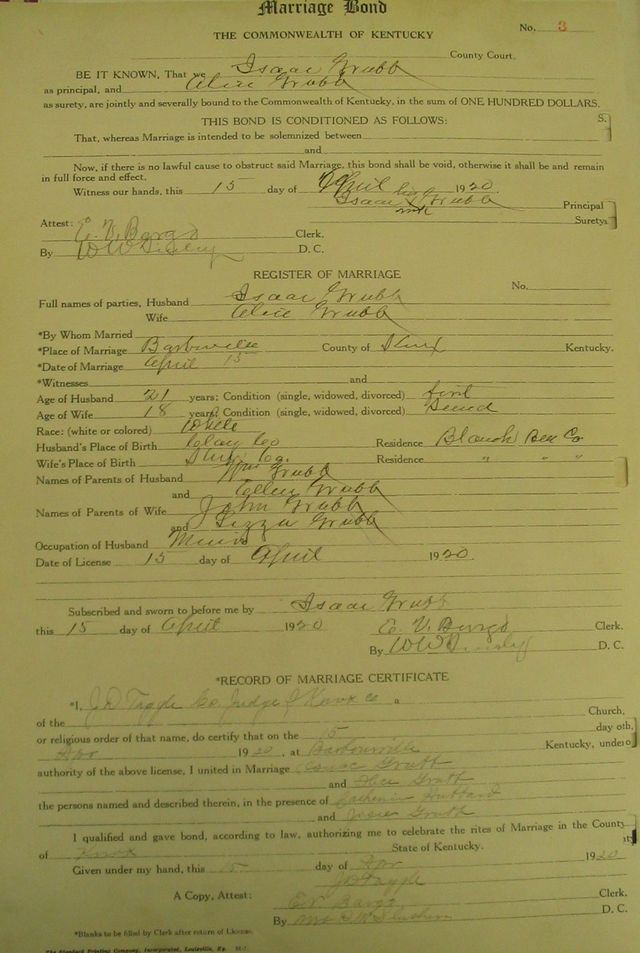 Marriage Bond
THE COMMONWEALTH OF KENTUCKY
No. 3
County Court.
BE IT KNOWN, That we Isaac Grubb
as principal, and Alice Grubb
as surety, are jointly and severally bound to the Commonwealth of Kentucky, in the sum of ONE HUNDRED DOLLARS.
THIS BOND IS CONDITIONED AS FOLLOWS: S.
That, whereas Marriage is intended to be solemnized between
and
Now, if there is no lawful cause to obstruct said Marriage, this bond shall be void, otherwise it shall be and remain
in full force and effect.
Witness our hands, this 15 day of April 1920
Isaac Grubb Principal
Surety
Attest: Clerk.
By D. C.
REGISTER OF MARRIAGE
No.
Full names of parties, Husband Isaac Grubb
Wife Alice Grubb
*By Whom Married
*Place of Marriage Barbourville County of Knox Kentucky.
*Date of Marriage April 15
*Witnesses and
Age of Husband 21 years; Condition (single, widowed, divorced)
Age of Wife 18 years; Condition (single, widowed, divorced)
Race: (white or colored) White
Husband's Place of Birth Clay Co Residence Co
Wife's Place of Birth Knox Co. Residence " " "
Names of Parents of Husband Wm Grubb
and Ellen Grubb
Names of Parents of Wife John Grubb
and Lizza Grubb
Occupation of Husband
Date of License 15 day of April 1920
Subscribed and sworn to before me by Isaac Grubb
this 15 day of April 1920 Clerk.
By D. C.
*RECORD OF MARRIAGE CERTIFICATE
*I, J D Judge Knox Co a
of the Church,
or religious order of that name, do certify that on the 15 day of
Apr 1920, at Barbourville Kentucky, under
authority of the above license, I united in Marriage Isaac Grubb
and Alice Grubb
the persons named and described therein, in the presence of Hubbard
and Grubb
I qualified and gave bond, according to law, authorizing me to celebrate the rites of Marriage in the County
of Knox State of Kentucky.
Given under my hand, this 15 day of Apr 1920
J D
A Copy, Attest: Clerk.
By D. C.
*Blanks to be filled by Clerk after return of License.
The Standard Printing Company, Incorporated, Louisville, Ky.